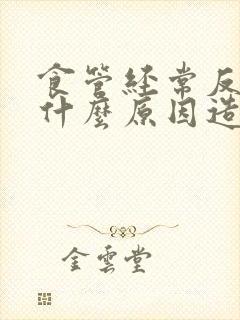 食管經常反
什麼原因造
金雲堂